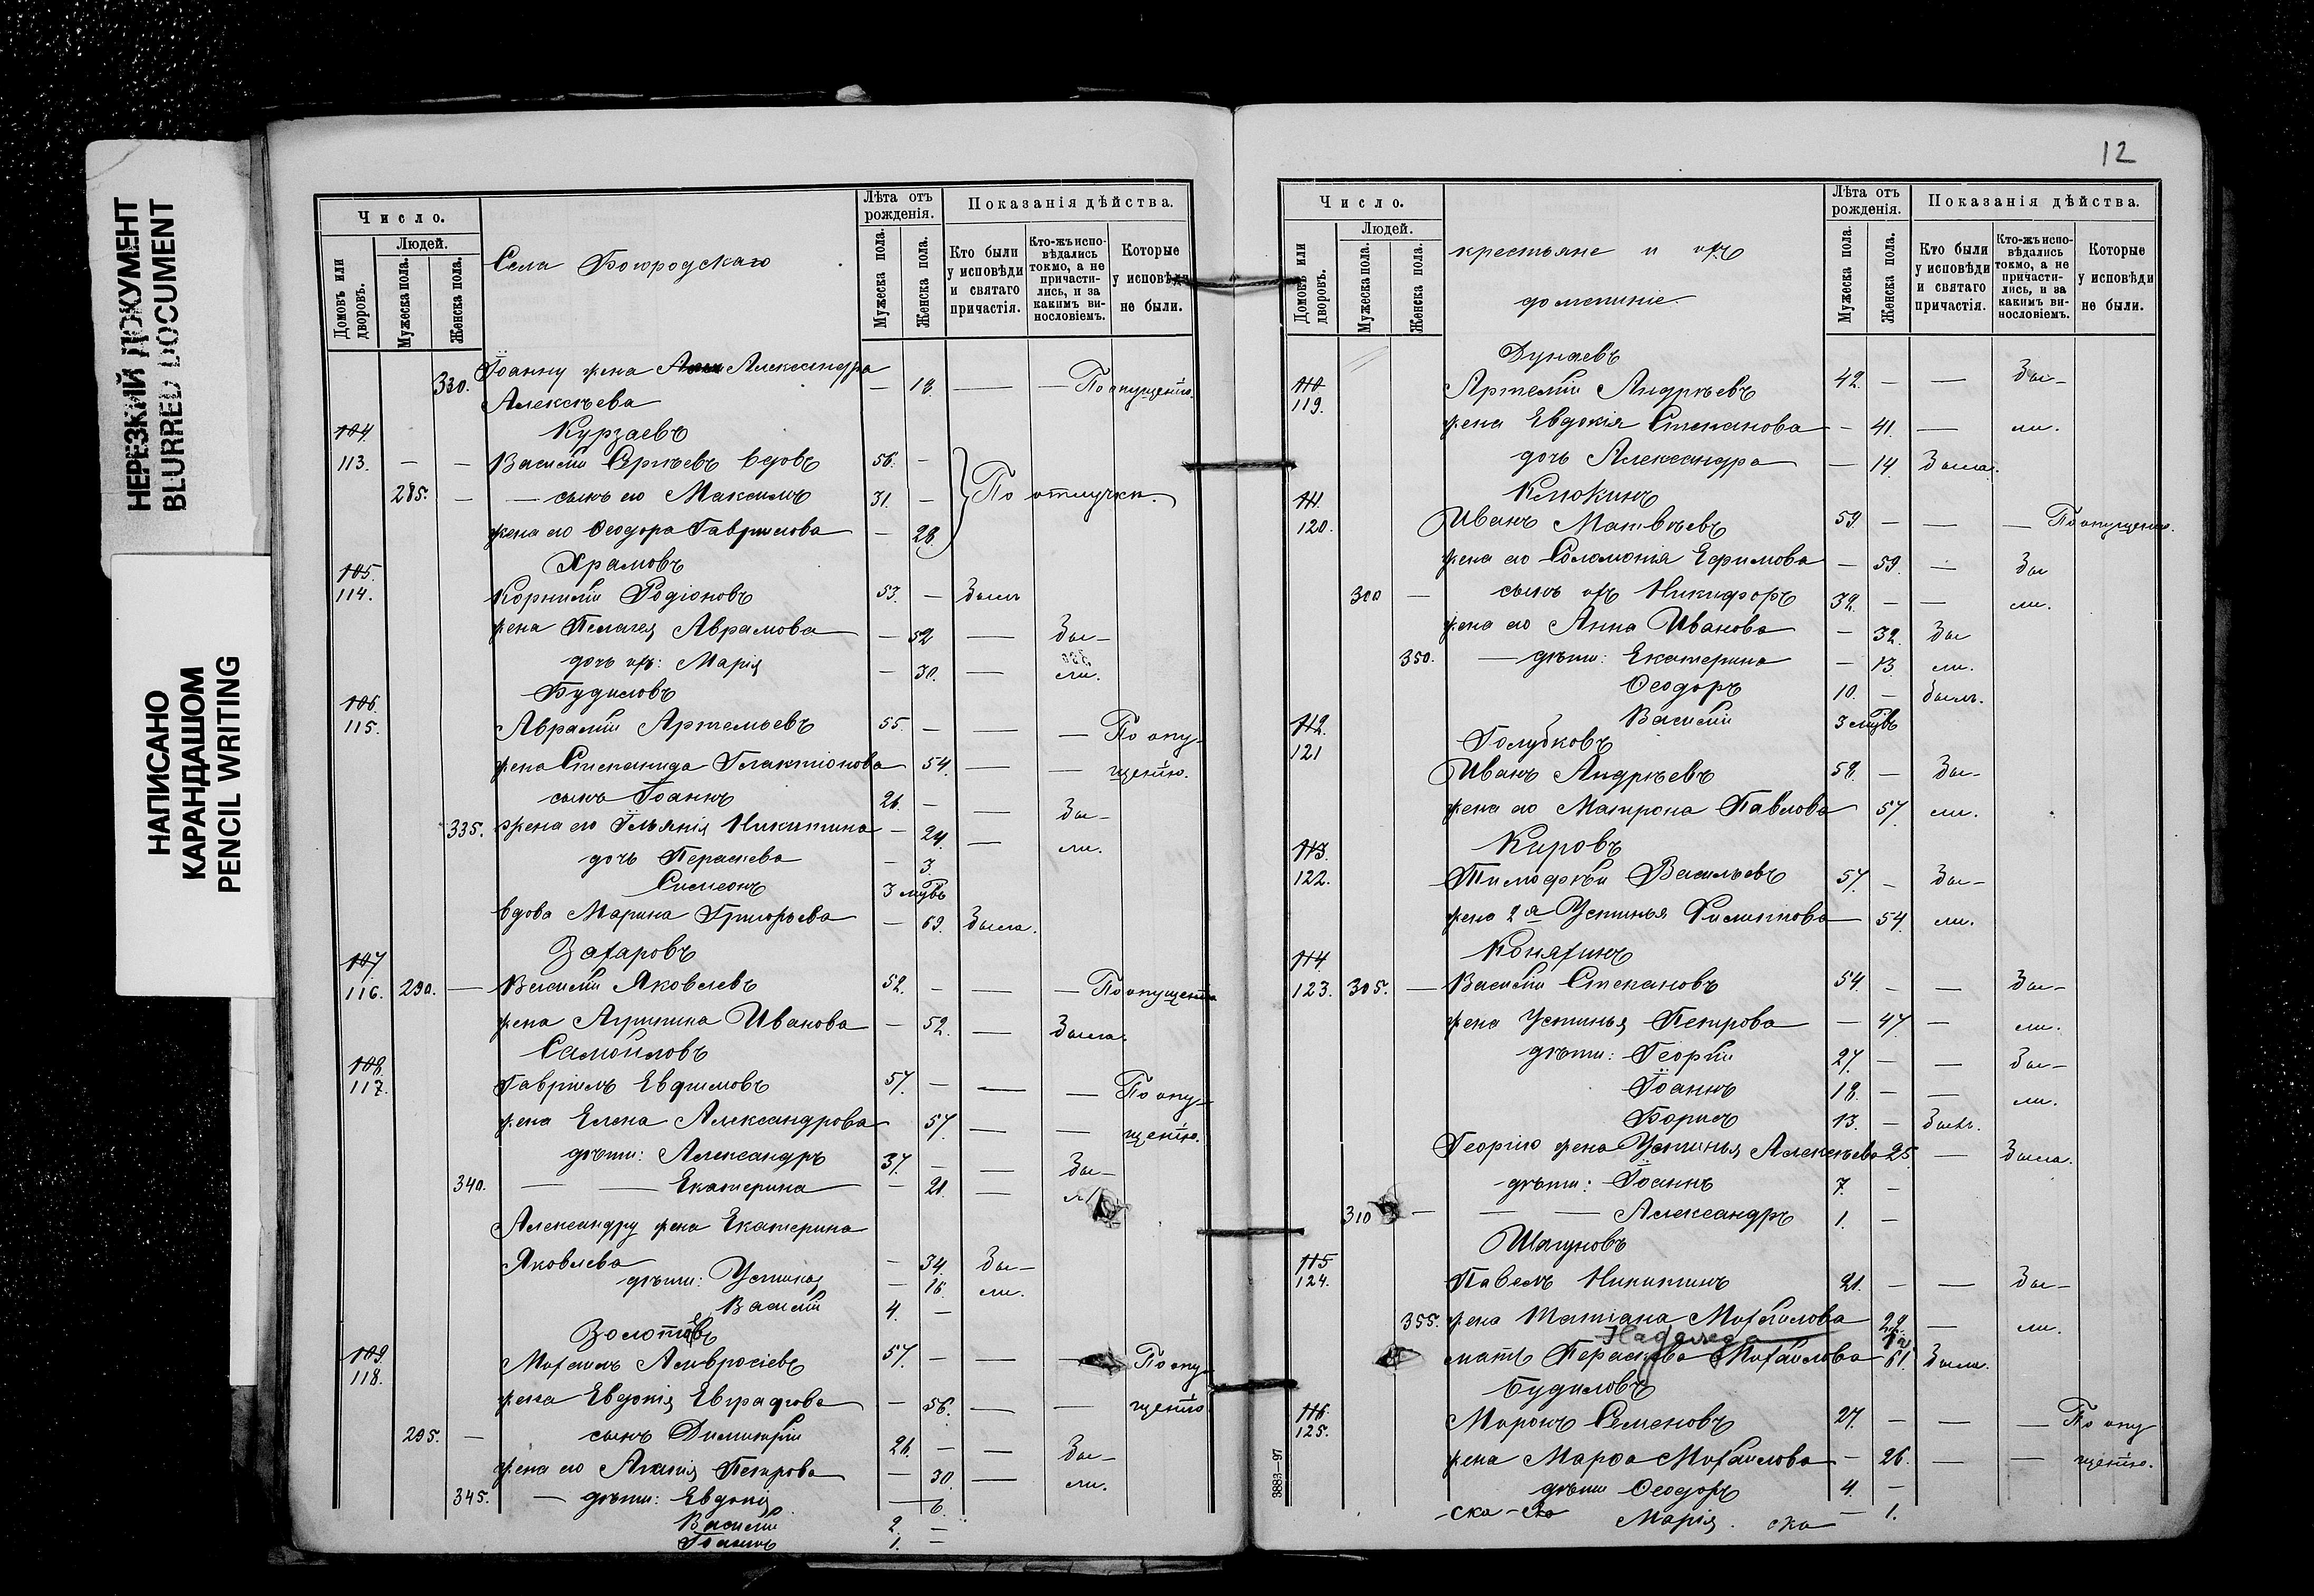 НЕРЕЗКИЙ ДОКУМЕНТ
BLURRED DOCUMENT
НАПИСАНО
КАРАНДАШОМ
PENCIL WRITING
Число.
Людей.
Домовъ или дворовъ.
Мужеска пола.
Женска пола.
Села Богородскаго
Лѣта отъ рожденія.
Мужеска пола.
Женска пола.
Показанія дѣйства.
Кто были у исповѣди и святаго причастія.
Кто-жъ исповѣдались токмо, а не причастились, и за какимъ винословіемъ.
Которые у исповѣди не были.
330. Іоанну жена Александра — 18. — — По опущенію.
Алексѣева
104. Курзаевъ
113. — — Василій Сергѣевъ вдовъ 56. —
285. — — сынъ его Максимъ 31. — По отлучкѣ.
жена его Ѳеодора Гаврилова — 28.
105. Храмовъ
114. Корнилій Родіоновъ 53. — Былъ
жена Пелагея Аврамова — 52 — Бы-
дочь ихъ: Марія — 30. — ли.
106. Будиловъ
115. Аврамій Артемьевъ 55. — — — По опу-
жена Степанида Галактіонова 54. — — щенію.
сынъ Іоаннъ 26. — — Бы-
335. жена его Іуліанія Никитина — 24. — ли.
дочь Параскева — 3.
Симеонъ 3 мцвъ
вдова Марина Григорьева — 69. Была.
107 Захаровъ
116. 290. — Василій Яковлевъ 52. — — — По опущенію
жена Агрипина Иванова — 52. — Была.
108. Самойловъ
117. Гавріилъ Евфимовъ 57. — — — По опу-
жена Елена Александрова 57. — — щенію.
дѣти: Александръ 37. — — Бы-
340. — — Екатерина — 21. —
Александру жена Екатерина
Яковлева — 34. Бы-
дѣти: Устинія — 16. ли.
Василій 4. —
Золотовъ
109. Михаилъ Амвросіевъ 57. — — — По опу-
118.
жена Евдокія Евграфова — 56. — — щенію
295. — сынъ Димитрій 26. — — Бы-
жена его Агапія Петрова — 30. — ли.
345. — дѣти: Евдокія — 6.
Василій 2. —
Іоаннъ 1. —
12
Число.
Людей.
Домовъ или дворовъ.
Мужеска пола.
Женска пола.
крестьяне и ихъ
домашніе.
Лѣта отъ рожденія.
Мужеска пола.
Женска пола.
Показанія дѣйства.
Кто были у исповѣди и святаго причастія.
Кто-жъ исповѣдались токмо, а не причастились, и за какимъ винословіемъ.
Которые у исповѣди не были.
Дунаевъ
110 Артемій Андреевъ 42. — — Бы-
119.
жена Евдокія Степанова — 41. — ли.
дочь Александра — 14. Была.
111. Клюкинъ
120. Иванъ Матвѣевъ 59. — — — По опущенію.
жена его Соломонія Ефимова — 59. — Бы
300 — сынъ ихъ Никифоръ 32. — — ли.
жена его Анна Иванова — 32. Бы
350. — дѣти: Екатерина — 13. ли.
Ѳеодоръ 10. — былъ.
Василій 3 мцвъ
112. Голубковъ
121
Иванъ Андреевъ 58. — Бы-
жена его Матрона Павлова 57. ли.
113. Кировъ
122. Тимофѣй Васильевъ 57. — Бы-
жена 2я Устинья Филиппова 54. ли.
114. Коняхинъ
123. 305. — Василій Степановъ 54. — — Бы-
жена Устинья Петрова — 47. — ли.
дѣти: Георгій 27. — — Бы-
Іоаннъ 18. — — ли.
Борисъ 13. — Былъ.
Георгію жена Устинья Алексѣева 25. — Была.
дѣти: Іоаннъ 7. —
310 — — — Александръ 1. —
Шагуновъ
115
124. Павелъ Никитинъ 21. — — Бы-
355. жена Татіана Михайлова 22. — ли.
Надежда
мать Параскева Михайлова 61. Была.
Будиловъ
116. Миронъ Семеновъ 27. — — — По опу
125.
жена Марѳа Михайлова — 26. — — щенію.
дѣти Ѳеодоръ 4. —
-ска-ска Марія. ска — 1.
3883—97